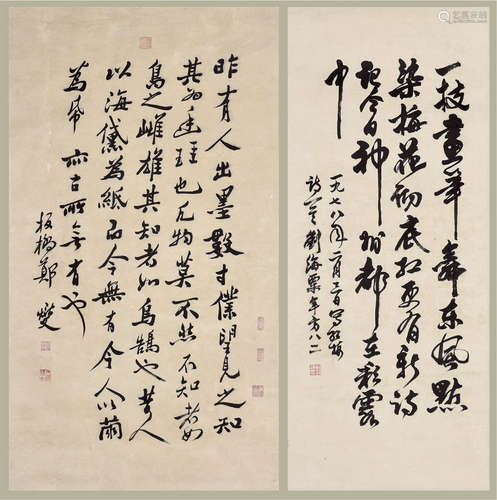 昨有人出墨數寸僕望見之知
其為廷珪也凡物莫不然不知者如
鳥之雌雄其知者如烏鵠也昔人
以海為紙今無有今人以繭
為帋亦古所無有也
板橋鄭燮
一枝畫筆舞東風點
染梅花徹底紅更有新詩
記今日神州都在彩雲
中
一九七八年一月三日寫紅梅
詩意劉海粟年方八二